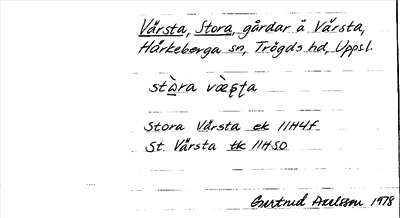 Vårsta, Stora, gårdar å Vårsta,
Härkeberga sn, Trögds hd, Uppsl.
stɑ̀ra væ̀ʂʈa
Stora Vårsta ek 11H4f
St. Vårsta tk 11HSO
Gertrud Axelsson 1978